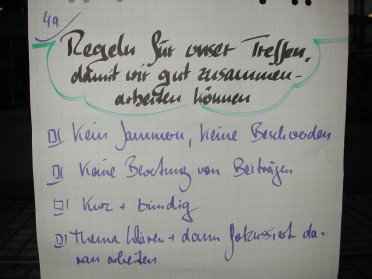 4a
Regeln für unser Treffen,
damit wir gut zusammen-
arbeiten können
Kein Jammern, keine Beschwerden
Keine Bewertung von Beiträgen
Kurz + bündig
Thema klären + dann fokussiert da-
ran arbeiten